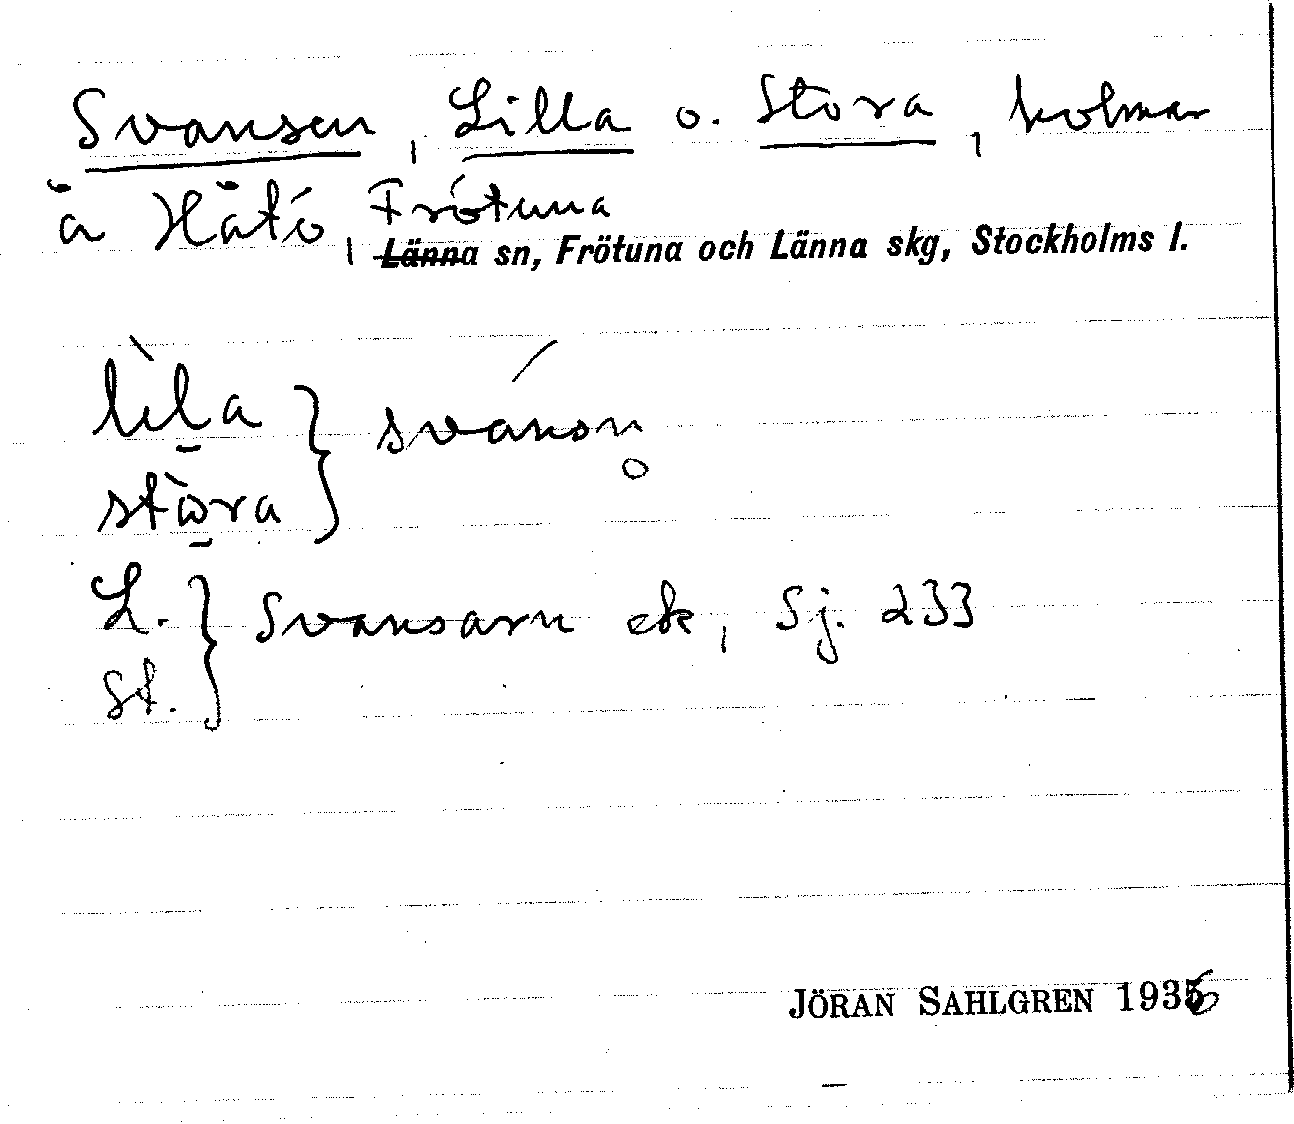 Svansen, Lilla o. Stora, holmar
å Hätö, Frötuna
Länna sn, Frötuna och Länna skg, Stockholms l.
lìla } svánsn̥
stòra
L. } Svansarn ek, Sj. 233
St.
JÖRAN SAHLGREN 1936